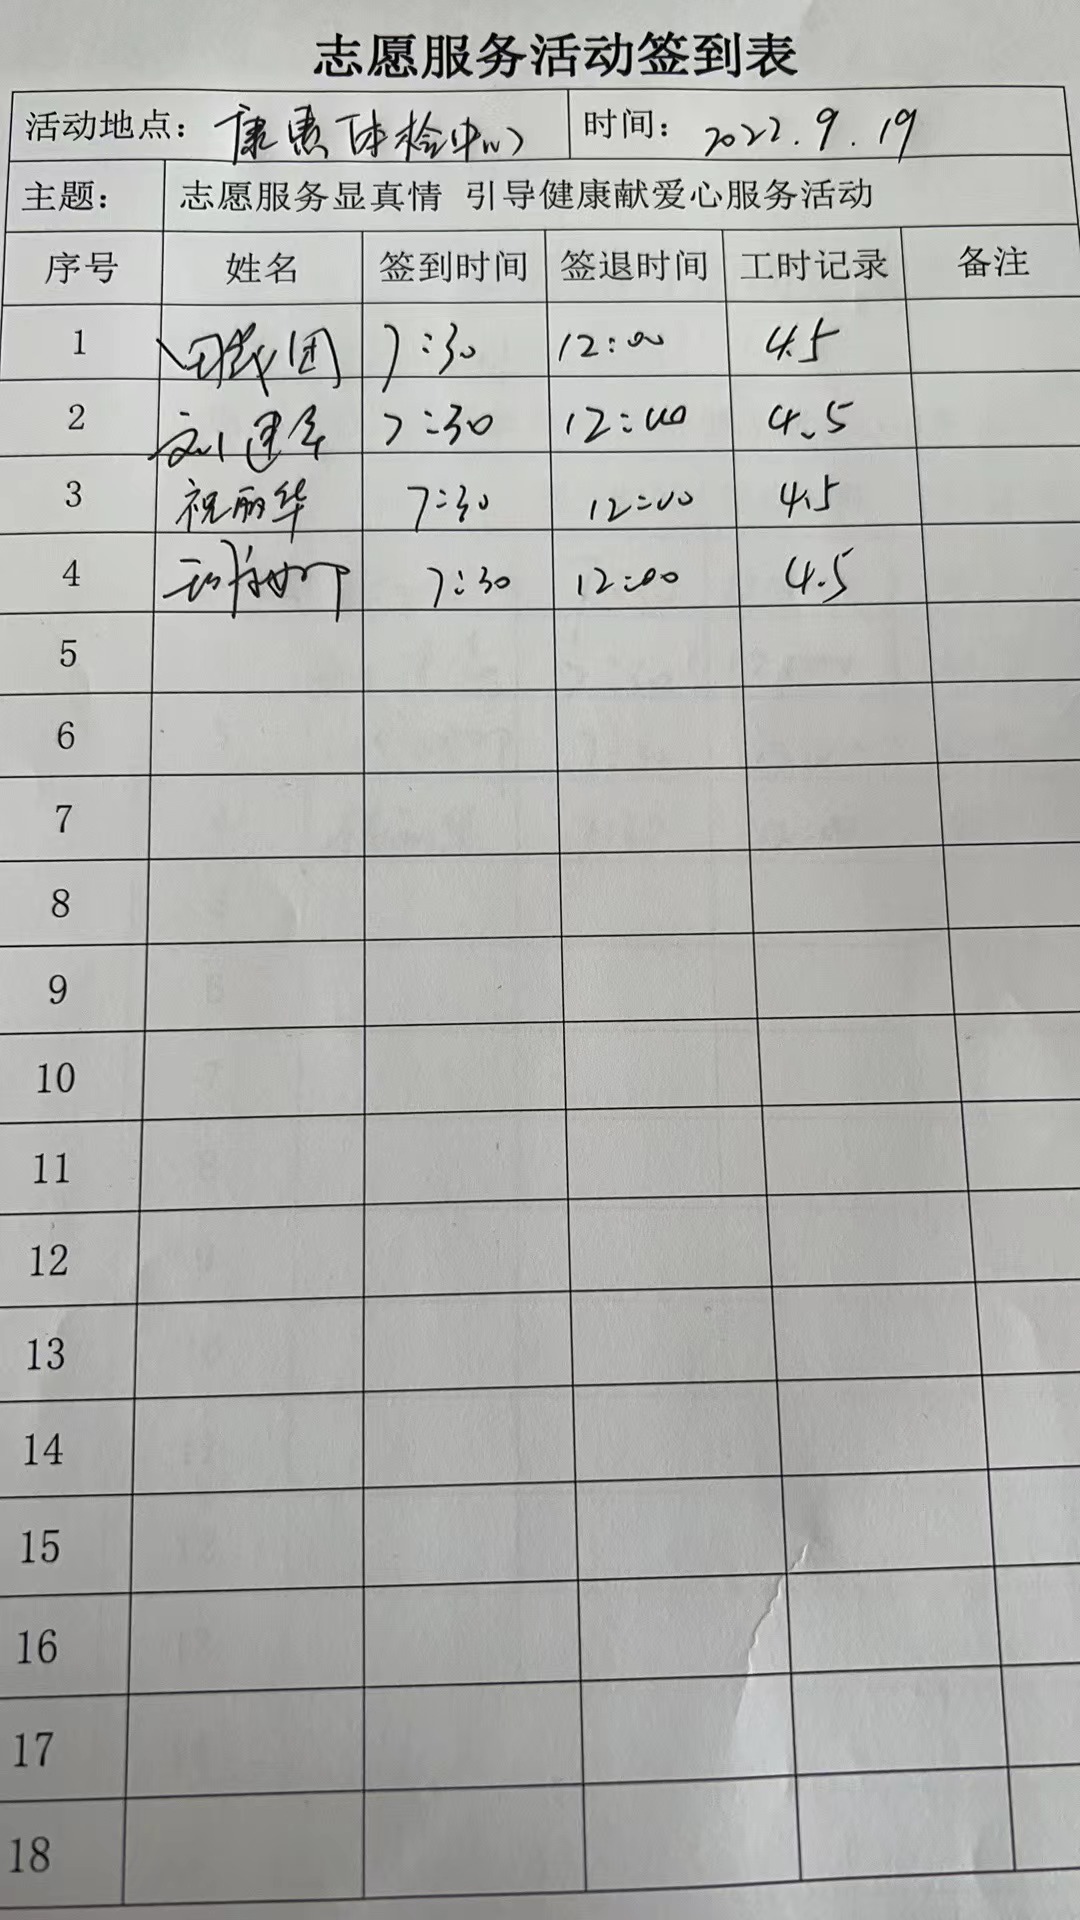 志愿服务活动签到表
活动地点: 康惠体检中心 时间: 2022.9.19
主题: 志愿服务显真情 引导健康献爱心服务活动
序号 姓名 签到时间 签退时间 工时记录 备注
1 7:30 12:00 4.5
2 刘建军 7:30 12:00 4.5
3 祝丽华 7:30 12:00 4.5
4 7:30 12:00 4.5
5
6
7
8
9
10
11
12
13
14
15
16
17
18